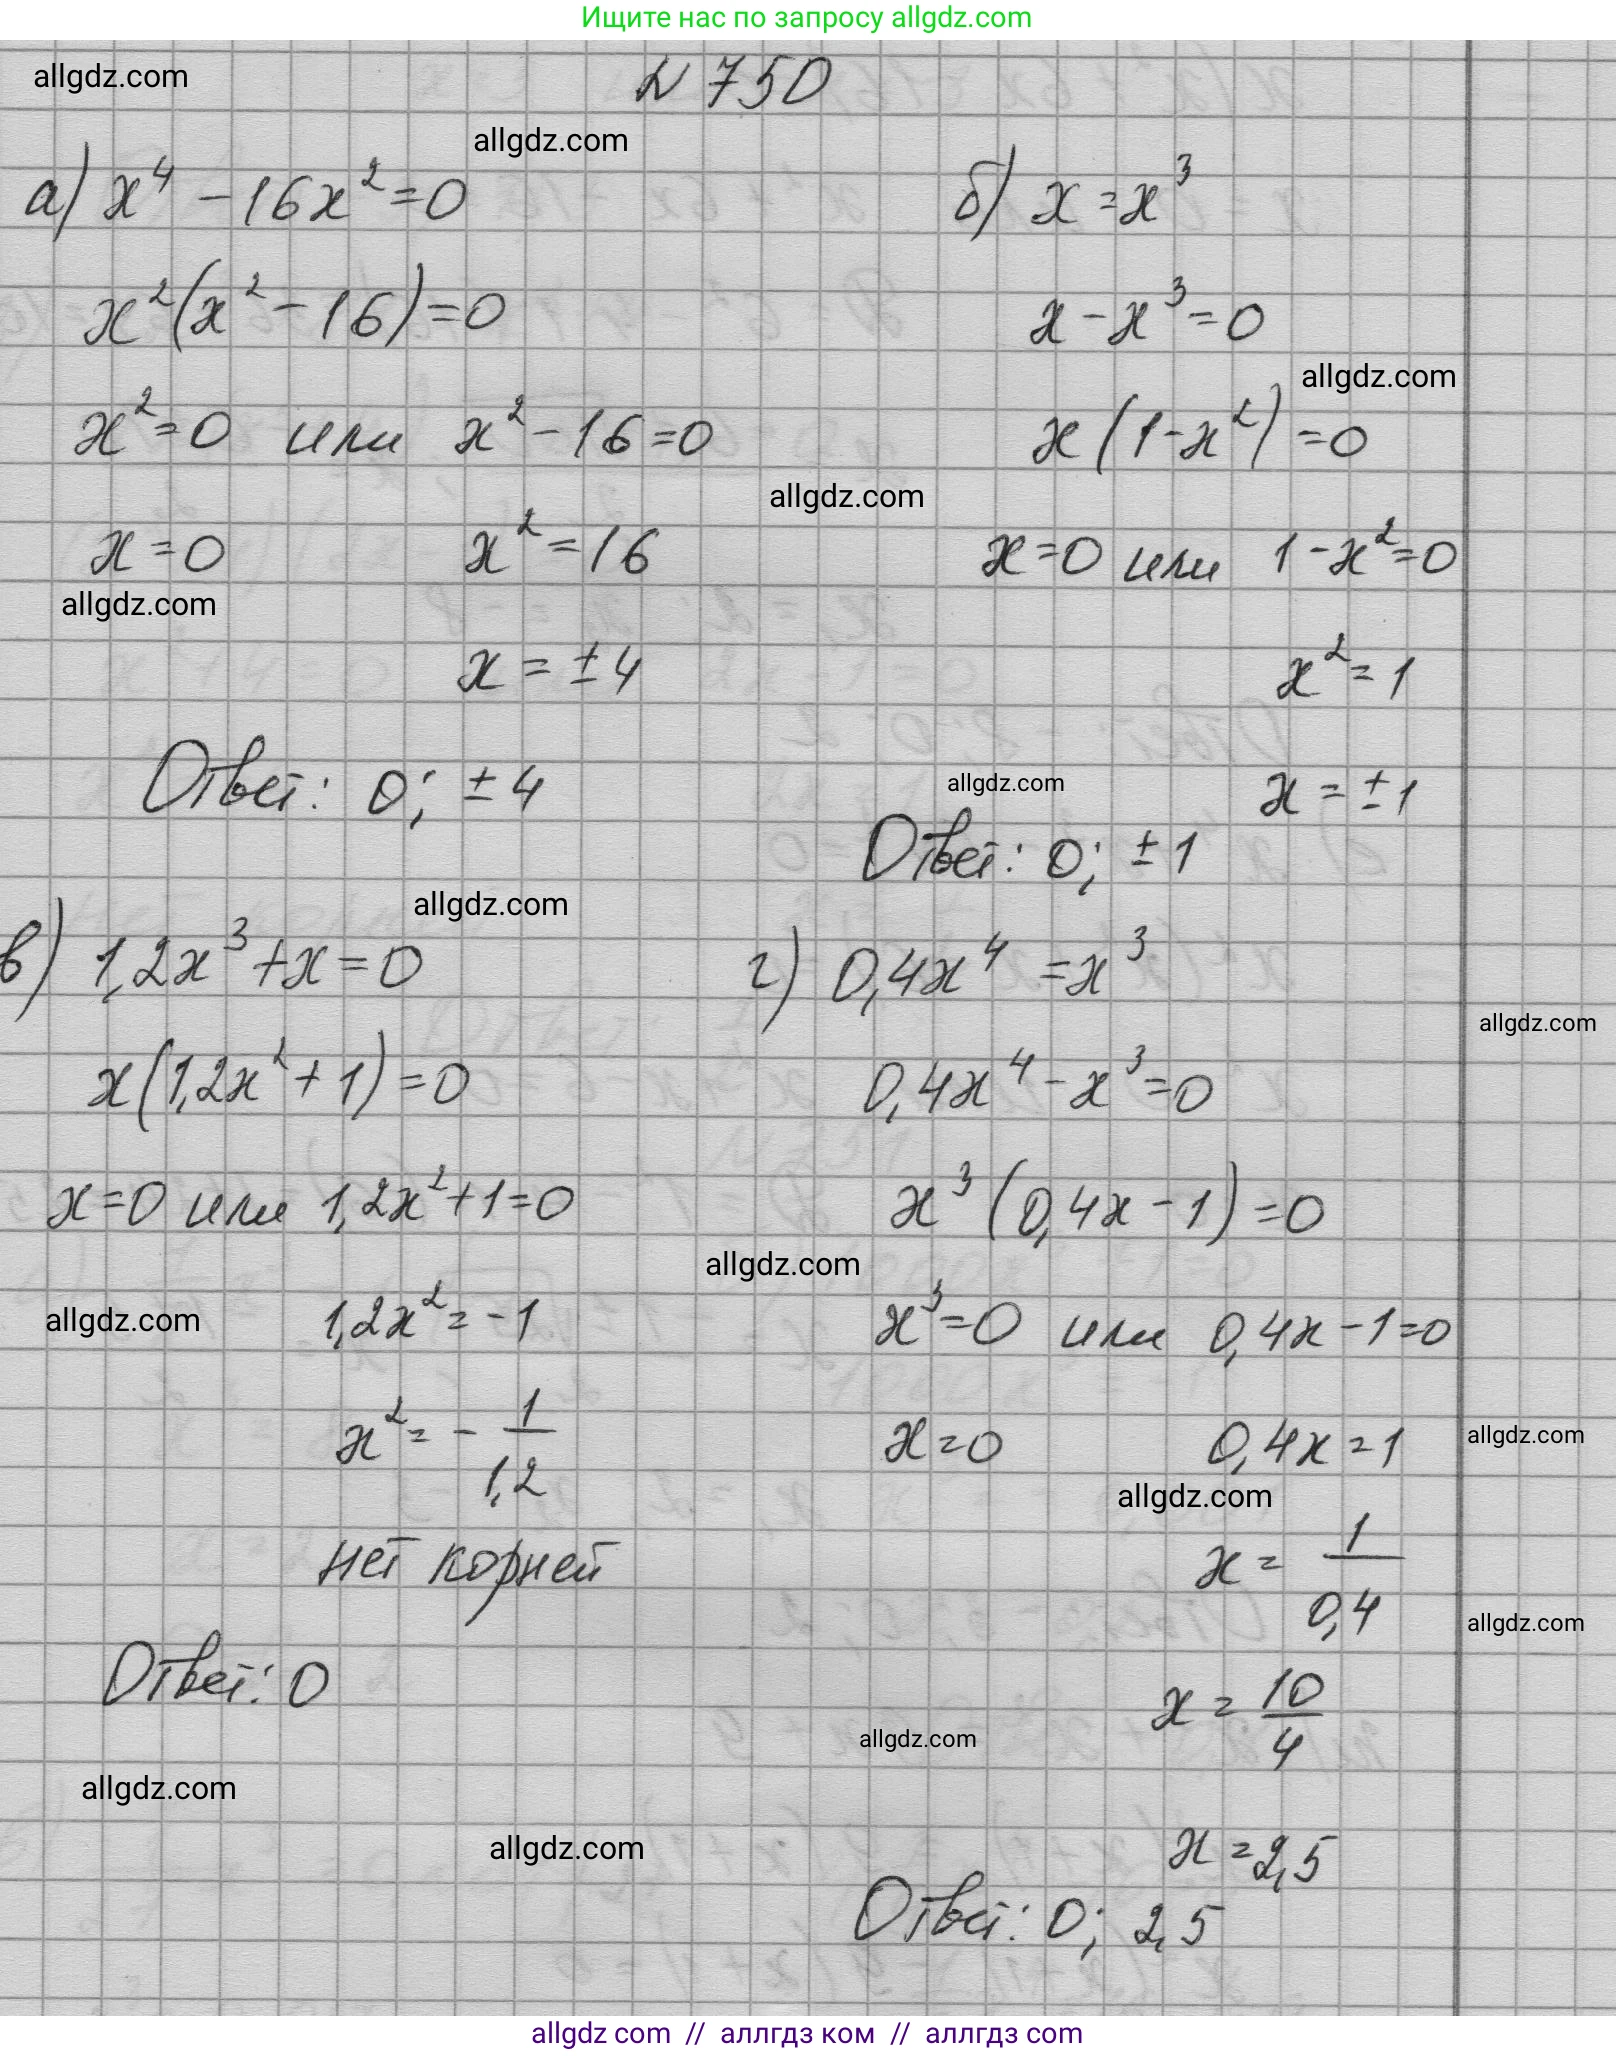 Ищите нас по запросу allgdz.com
allgdz.com
N 750
allgdz.com
а) x⁴ - 16x² = 0
x²(x² - 16) = 0
x² = 0 или x² - 16 = 0
x = 0 x² = 16
allgdz.com
x = ± 4
Ответ: 0; ± 4
б) x = x³
x - x³ = 0
allgdz.com
x(1 - x²) = 0
allgdz.com
x = 0 или 1 - x² = 0
x² = 1
allgdz.com
x = ± 1
Ответ: 0; ± 1
allgdz.com
в) 1,2x³ + x = 0
x(1,2x² + 1) = 0
x = 0 или 1,2x² + 1 = 0
allgdz.com
1,2x² = -1
x² = - 1/1,2
нет корней
Ответ: 0
allgdz.com
allgdz.com
г) 0,4x⁴ = x³
allgdz.com
0,4x⁴ - x³ = 0
x³(0,4x - 1) = 0
allgdz.com
x³ = 0 или 0,4x - 1 = 0
x = 0 0,4x = 1
allgdz.com
allgdz.com
x = 1/0,4
allgdz.com
x = 10/4
allgdz.com
x = 2,5
Ответ: 0; 2,5
allgdz com // аллгдз ком // аллгдз com